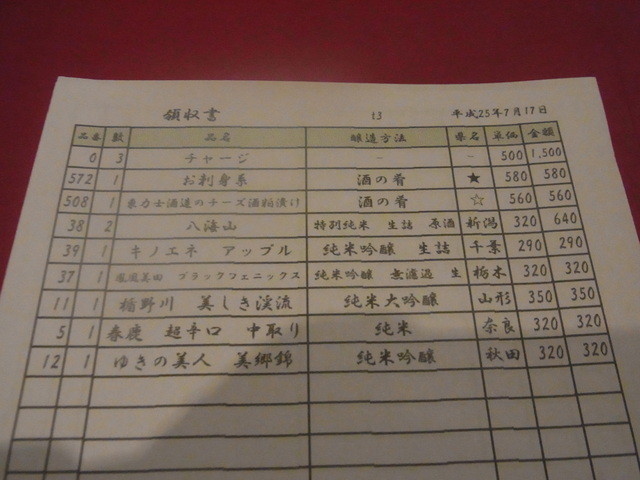 領収書 13 平成25年7月17日
品番 数 品名 醸造方法 県名 単価 金額
0 3 チャージ - - 500 1,500
572 1 お刺身系 酒の肴 ★ 580 580
508 1 東力士酒造のチーズ酒粕漬け 酒の肴 ☆ 560 560
38 2 八海山 特別純米 生詰 原酒 新潟 320 640
39 1 キノエネ アップル 純米吟醸 生詰 千葉 290 290
37 1 鳳凰美田 ブラックフェニックス 純米吟醸 無濾過 生 栃木 320 320
11 1 楯野川 美しき渓流 純米大吟醸 山形 350 350
5 1 春鹿 超辛口 中取り 純米 奈良 320 320
12 1 ゆきの美人 美郷錦 純米吟醸 秋田 320 320